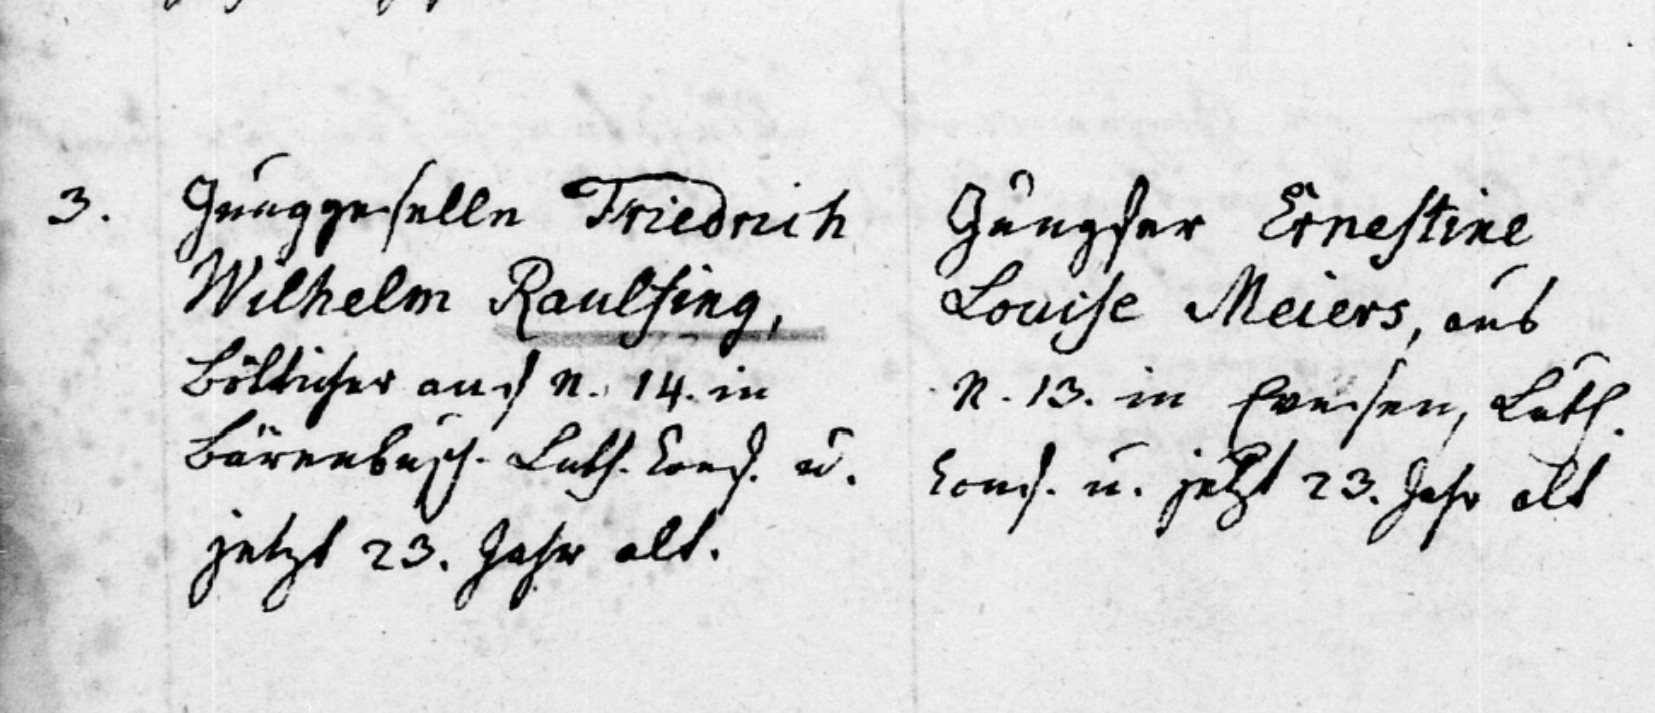 3. Junggeselle Friedrich
Wilhelm Raulfing,
Bötticher auf N. 14. in
Bärenbusch. Luth. Conf. u.
jetzt 23. Jahr alt.
Jungfer Ernestine
Louise Meiers, aus
N. 13. in Evesen, Luth.
Conf. u. jetzt 23. Jahr alt